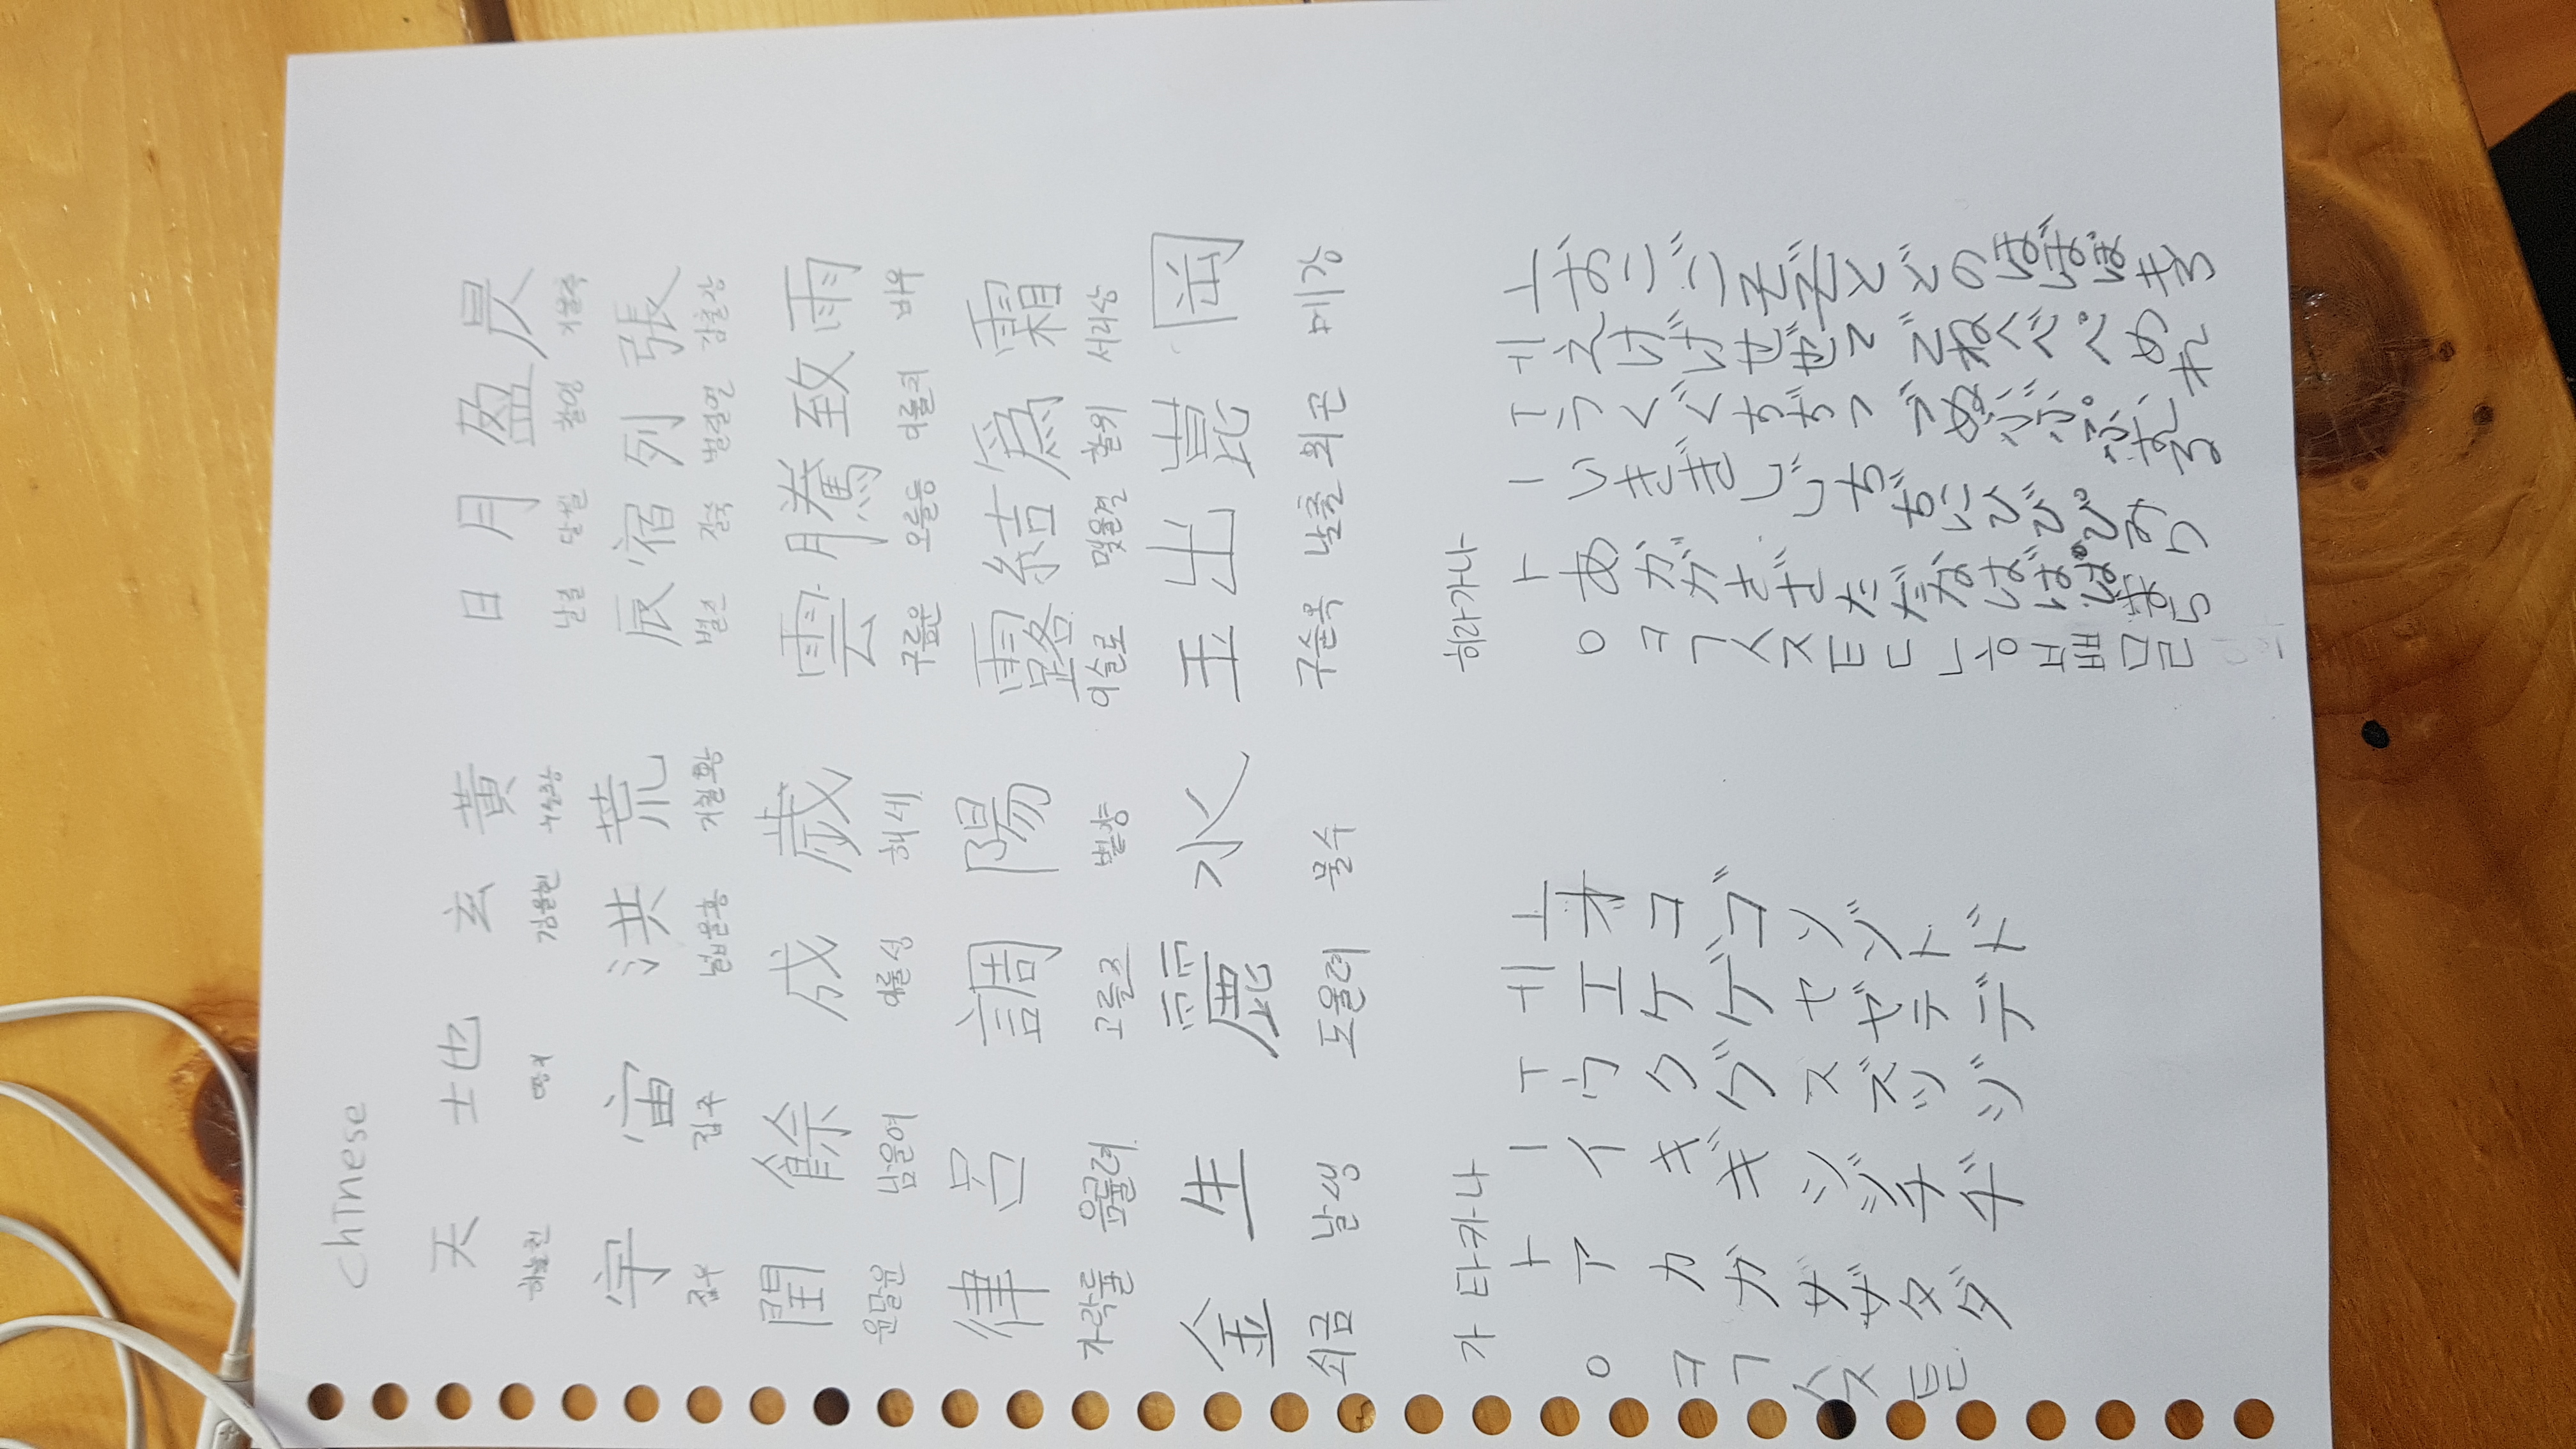 Chinese
天 地 玄 黃 日 月 盈 昃
하늘천 땅지 검을현 누를황 날일 달월 찰영 기울측
宇 宙 洪 荒 辰 宿 列 張
집우 집주 넓을홍 거칠황 별진 잘숙 벌릴열
閏 餘 成 歲 雲 騰 致 雨
윤달윤 남을여 이룰성 해세 구름운 오를등 이를치 비우
律 呂 調 陽 露 結 爲 霜
가락률 음률려 고를조 볕양 이슬로 맺을결 할위 서리상
金 生 麗 水 玉 出 崑 岡
쇠금 날생 도울려 물수 구슬옥 날출 뫼곤 메강
가타카나
ㅏ ㅣ ㅜ ㅔ ㅗ
ㅇ ア イ ウ エ オ
ㅋ カ キ ク ケ コ
ㄱ ガ ギ グ ゲ ゴ
ㅅ ザ ジ ス セ ソ
ㅈ ザ ジ ズ ゼ ゾ
ㅌ タ チ ツ テ ト
ㄷ ダ ヂ ヅ デ ド
히라가나
ㅏ ㅣ ㅜ ㅔ ㅗ
ㅇ あ い う え お
ㅋ か き く け こ
ㄱ が ぎ ぐ げ ご
ㅅ さ し す せ そ
ㅈ ざ じ ず ぜ ぞ
ㅌ た ち つ て と
ㄷ だ ぢ づ で ど
ㄴ な に ぬ ね の
ㅎ は ひ ふ へ ほ
ㅂ ば び ぶ べ ぼ
ㅃ ぱ ぴ ぷ ぺ ぽ
ㅁ ま み む め も
ㄹ ら り る れ ろ